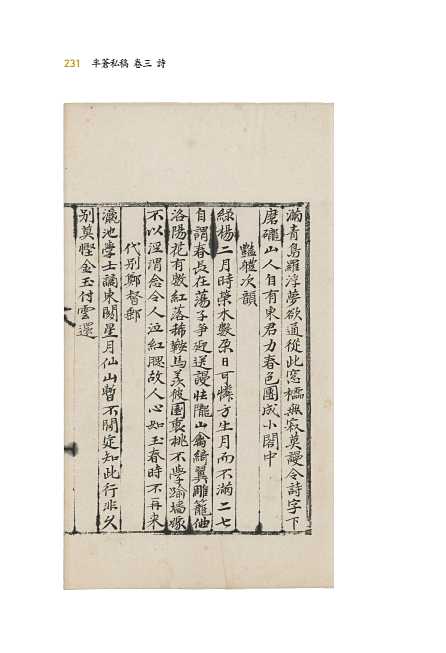 231 半蒼私稿 卷三 詩
滿青鳥羅浮夢欲通從此窓櫺無寂莫謾令詩字下
磨礲山人自有東君力春色團成小閣中
豔軆次韻
綠楊二月時榮木數朶日可憐方生月而不滿二七
自謂春長在蕩子爭迎送謾壯隴山禽綺翼雕籠
洛陽花有數紅落稀鞍馬羙彼園裏桃不學踰墻嫁
不以淫謂念令人泣紅腮故人心如玉春時不再来
代别鄭督郵
瀛池學士謫東關星月仙山暫不關定知此行非久
别莫慳金玉付雲還